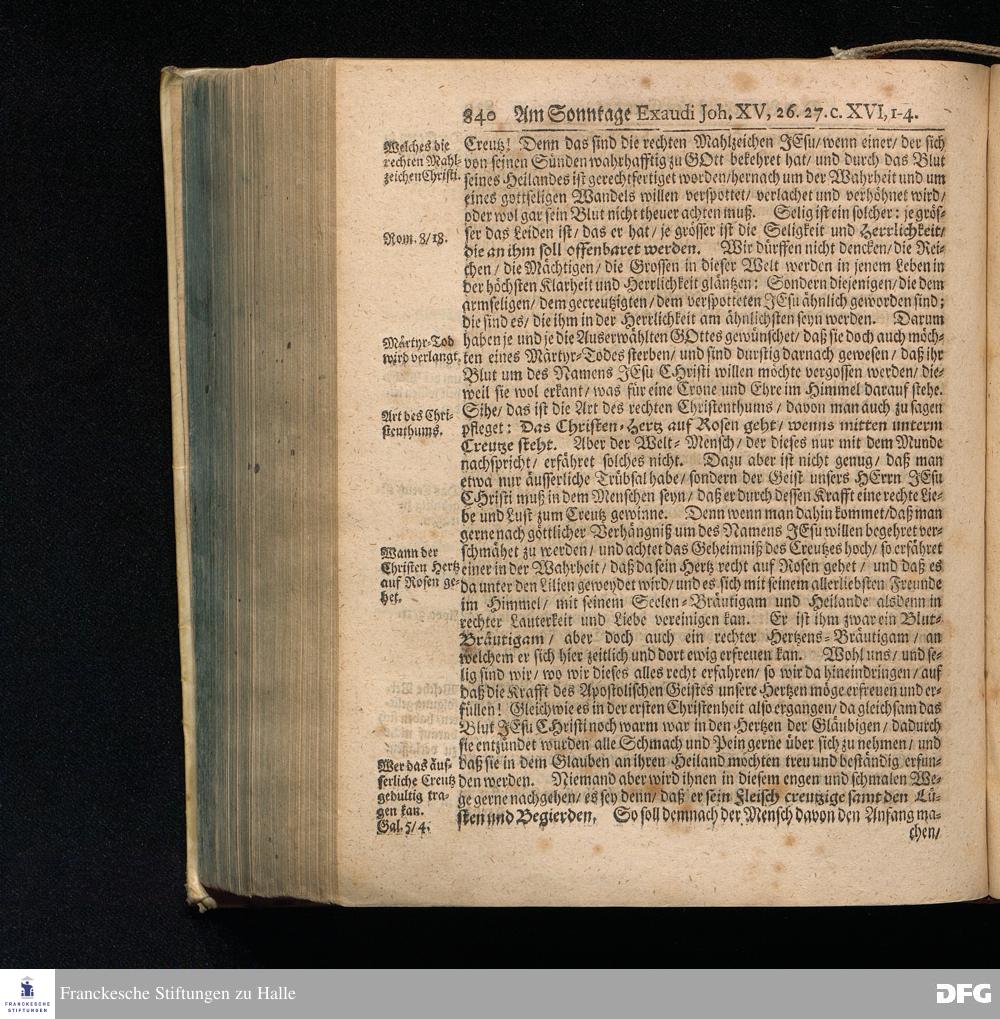 840 Am Sonntage Exaudi Joh. XV, 26. 27. c. XVI, 1-4.
Welches die
rechten Mahl-
zeichen Christi.
Creutz! Denn das sind die rechten Mahlzeichen JEsu/ wenn einer/ der sich
von seinen Sünden wahrhafftig zu GOtt bekehret hat/ und durch das Blut
seines Heilandes ist gerechtfertiget worden/ hernach um der Wahrheit und um
eines gottseligen Wandels willen verspottet/ verlachet und verhöhnet wird/
oder wol gar sein Blut nicht theuer achten muß. Selig ist ein solcher: je grös-
Rom. 8/18.
ser das Leiden ist/ das er hat/ je grösser ist die Seligkeit und Herrlichkeit/
die an ihm soll offenbaret werden. Wir dürffen nicht dencken/ die Rei-
chen/ die Mächtigen/ die Grossen in dieser Welt werden in jenem Leben in
der höchsten Klarheit und Herrlichkeit gläntzen: Sondern diejenigen/ die dem
armseligen/ dem gecreutzigten/ dem verspotteten JEsu ähnlich geworden sind;
die sind es/ die ihm in der Herrlichkeit am ähnlichsten seyn werden. Darum
Märtyr-Tod
wird verlanget.
haben je und je die Auserwählten GOttes gewünschet/ daß sie doch auch möch-
ten eines Märtyr-Todes sterben/ und sind durstig darnach gewesen/ daß ihr
Blut um des Namens JEsu CHristi willen möchte vergossen werden/ die-
weil sie wol erkant/ was für eine Crone und Ehre im Himmel darauf stehe.
Art des Chri-
stenthums.
Sihe/ das ist die Art des rechten Christenthums/ davon man auch zu sagen
pfleget: Das Christen-Hertz auf Rosen geht/ wenns mitten unterm
Creutze steht. Aber der Welt-Mensch/ der dieses nur mit dem Munde
nachspricht/ erfähret solches nicht. Dazu aber ist nicht genug/ daß man
etwa nur äusserliche Trübsal habe/ sondern der Geist unsers HErrn JEsu
CHristi muß in dem Menschen seyn/ daß er durch dessen Krafft eine rechte Lie-
be und Lust zum Creutz gewinne. Denn wenn man dahin kommet/ daß man
gerne nach göttlicher Verhängniß um des Namens JEsu willen begehret ver-
Wann der
Christen Hertz
auf Rosen ge-
het.
schmähet zu werden/ und achtet das Geheimniß des Creutzes hoch/ so erfähret
einer in der Wahrheit/ daß da sein Hertz recht auf Rosen gehet/ und daß es
da unter den Lilien geweydet wird/ und es sich mit seinem allerliebsten Freunde
im Himmel/ mit seinem Seelen-Bräutigam und Heilande alsdenn in
rechter Lauterkeit und Liebe vereinigen kan. Er ist ihm zwar ein Blut-
Bräutigam/ aber doch auch ein rechter Hertzens-Bräutigam/ an
welchem er sich hier zeitlich und dort ewig erfreuen kan. Wohl uns/ und se-
lig sind wir/ wo wir dieses alles recht erfahren/ so wir da hineindringen/ auf
daß die Krafft des Apostolischen Geistes unsere Hertzen möge erfreuen und er-
füllen! Gleichwie es in der ersten Christenheit also ergangen/ da gleichsam das
Blut JEsu CHristi noch warm war in den Hertzen der Gläubigen/ dadurch
sie entzündet wurden alle Schmach und Pein gerne über sich zu nehmen/ und
Wer das äus-
serliche Creutz
gedultig tra-
gen kan.
Gal. 5/4.
daß sie in dem Glauben an ihren Heiland möchten treu und beständig erfun-
den werden. Niemand aber wird ihnen in diesem engen und schmalen We-
ge gerne nachgehen/ es sey denn/ daß er sein Fleisch creutzige samt den Lü-
sten und Begierden. So soll demnach der Mensch davon den Anfang ma-
chen/
FRANCKESCHE
STIFTUNGEN
Franckesche Stiftungen zu Halle
DFG